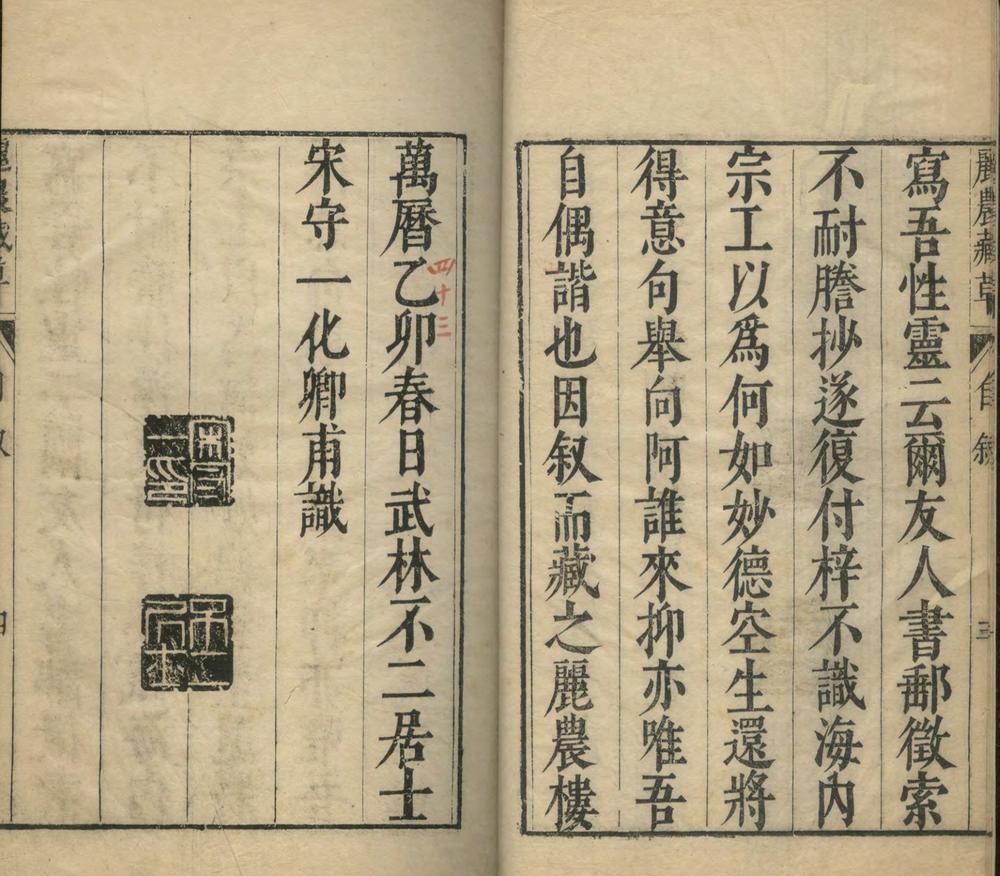 麗農藏草 自敘 三
寫吾性靈云爾友人書郵徵索
不耐謄抄遂復付梓不識海內
宗工以爲何如妙德空生還將
得意句舉向阿誰來抑亦唯吾
自偶諧也因叙而藏之麗農樓
萬曆乙卯春日武林不二居士
四十三
宋守一化卿甫識
宋守一印